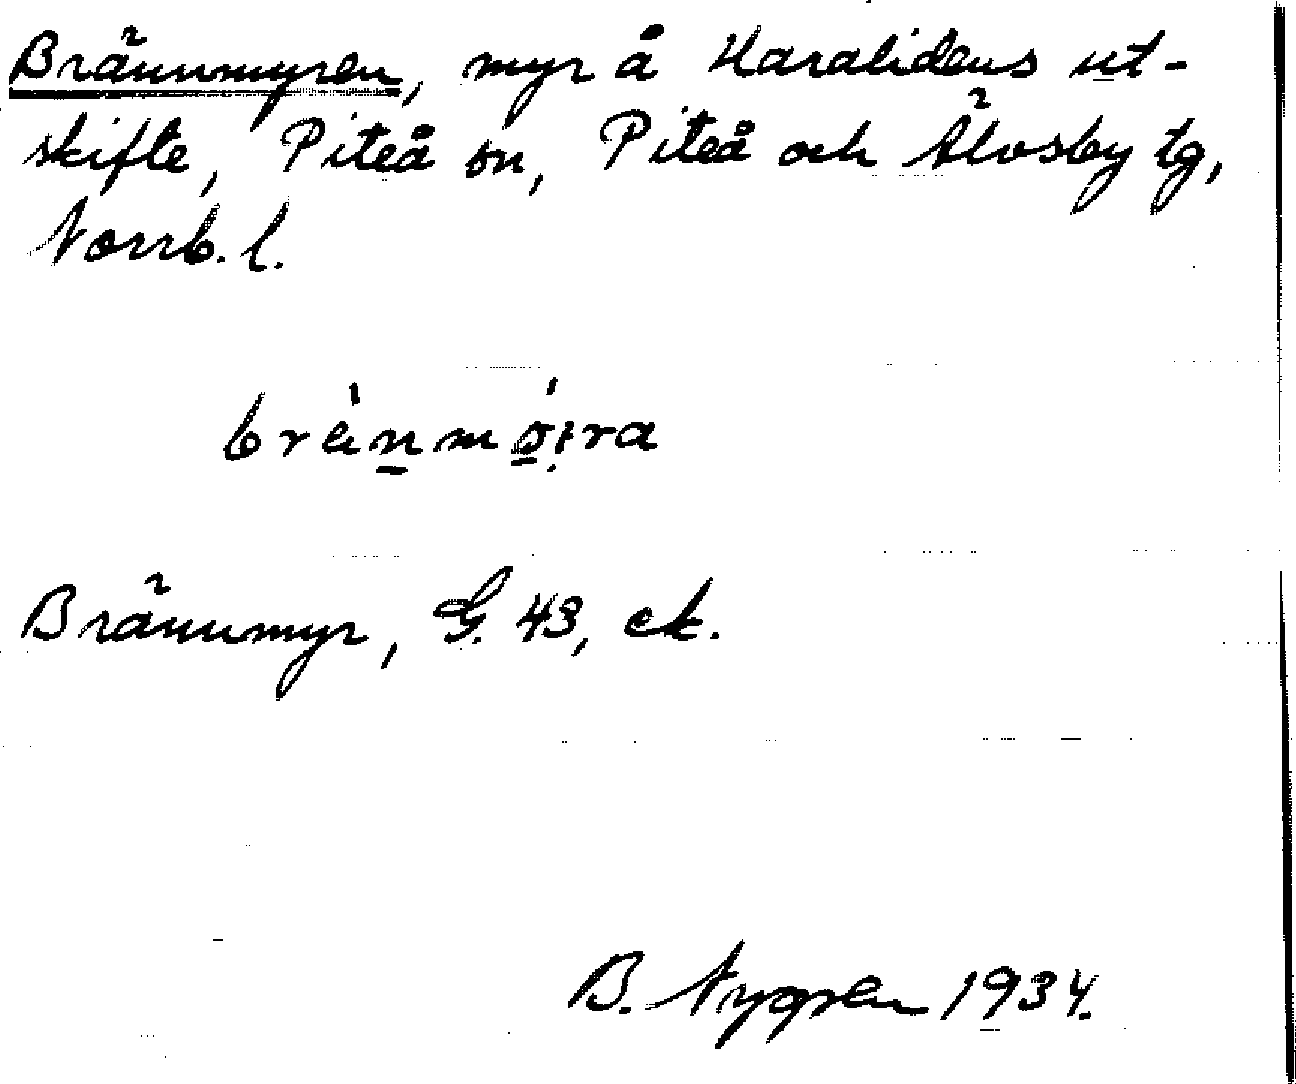 Brännmyren, myr å Haralidens ut-
skifte, Piteå sn, Piteå och Älvsby tg,
Norrb. l.
Brännmyr, G. 43, ek.
B. Nygren 1934.